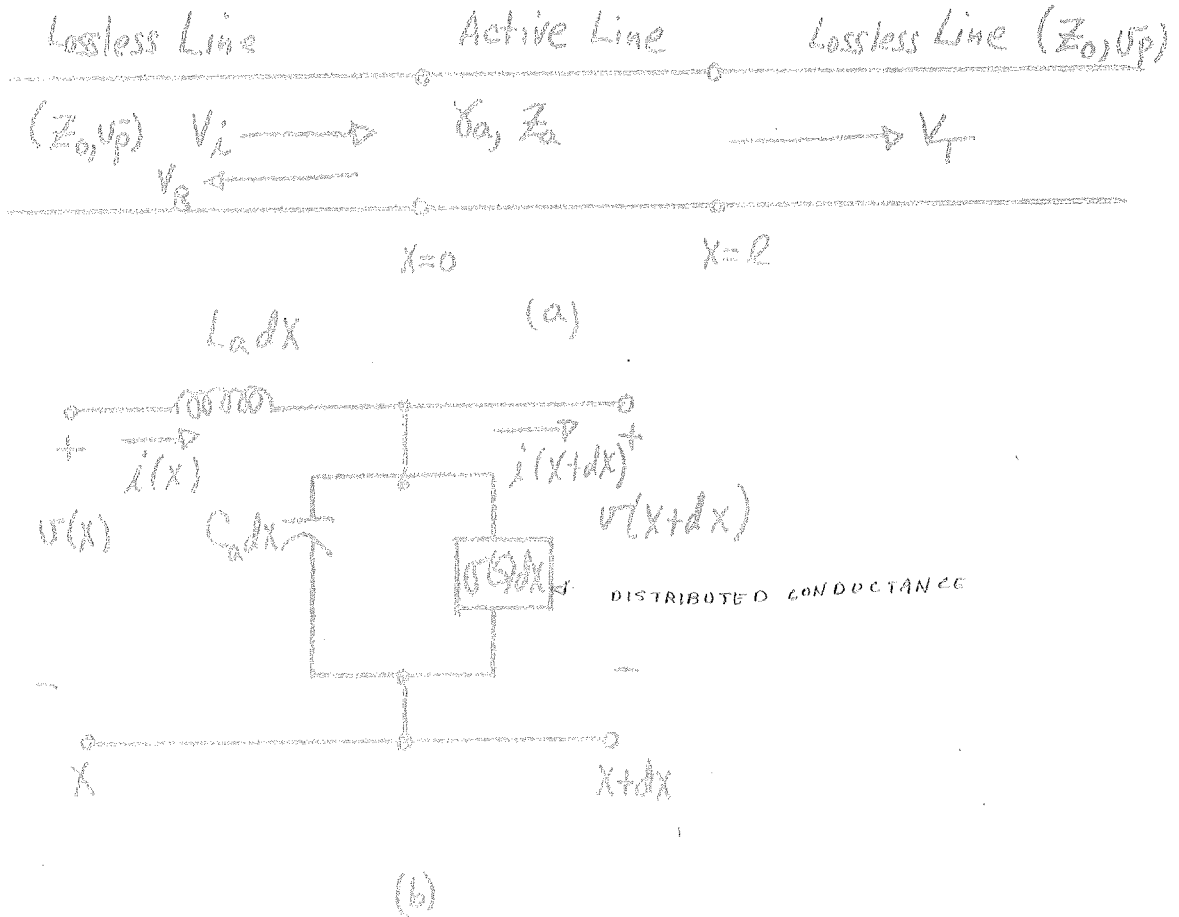 Lossless Line Active Line Lossless Line (Z₀, υp)
(Z₀, υp) Vi γa, Za VT
VR
X=0 X=l
(a)
La dX
+ i(X) i(X+dX) +
υ(X) Ca dX σ(S)dX υ(X+dX)
DISTRIBUTED CONDUCTANCE
- -
X X+dX
(b)